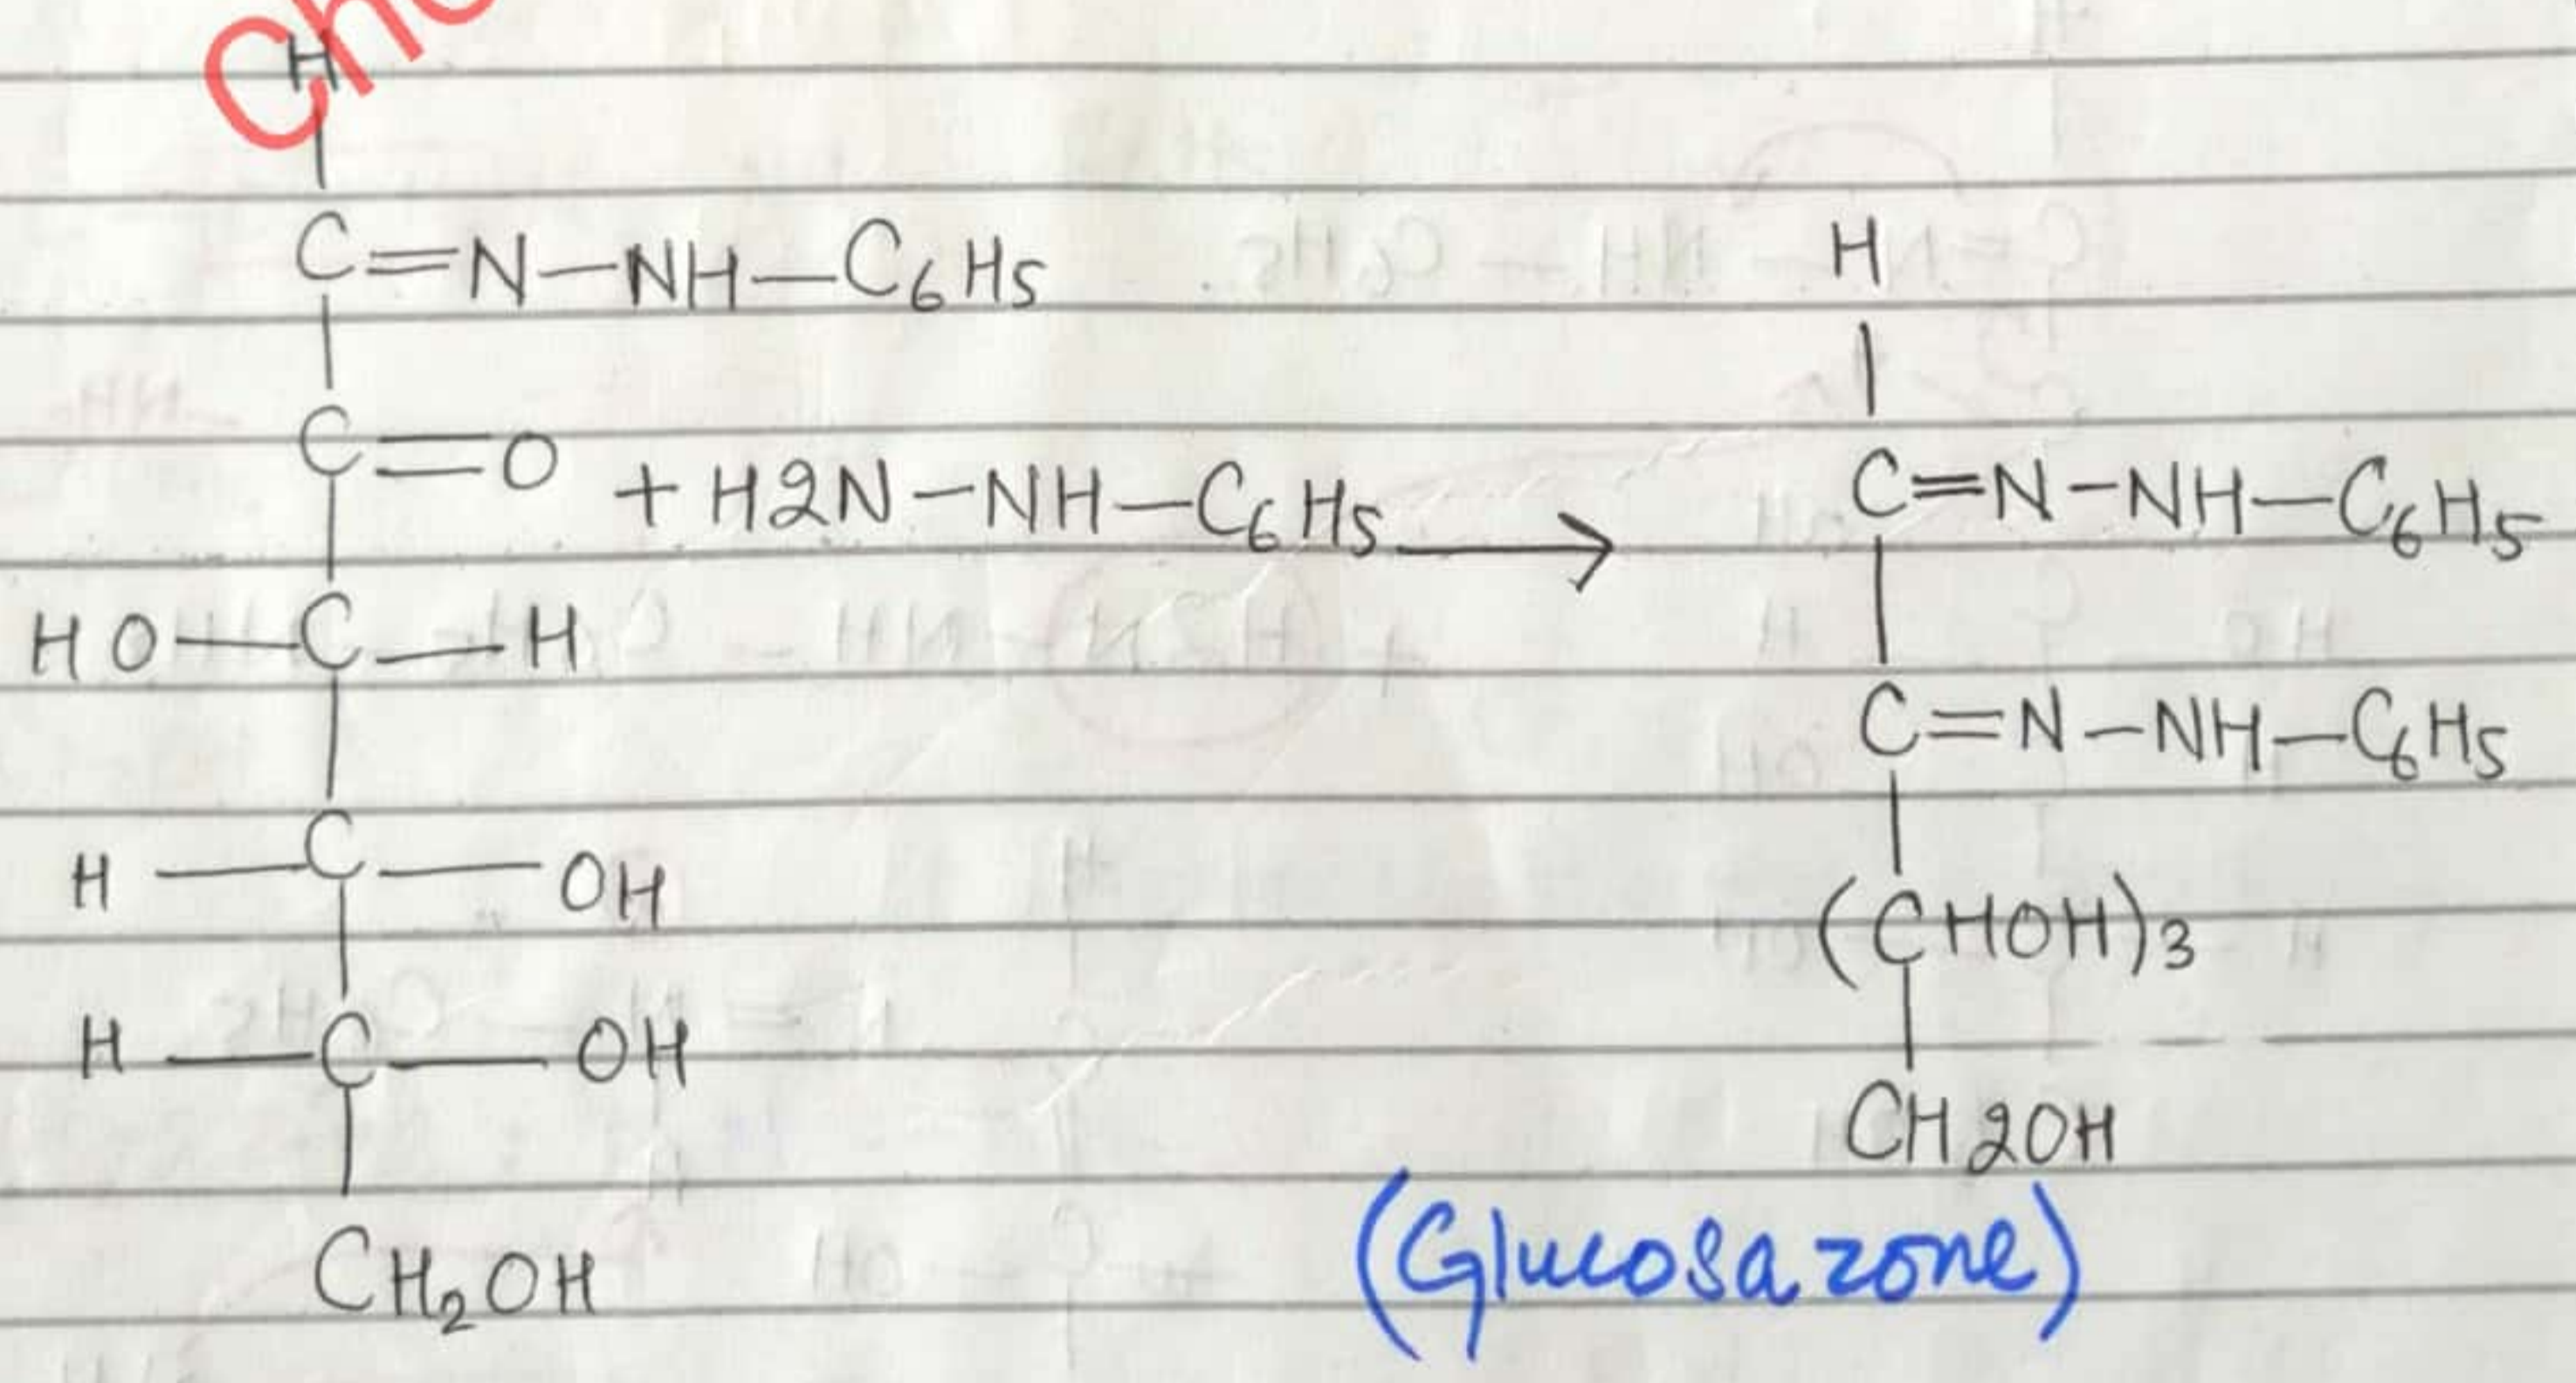 Che
H
C=N—NH—C6H5
C=O + H2N—NH—C6H5 →
HO—C—H
H—C—OH
H—C—OH
CH2OH
H
C=N—NH—C6H5
C=N—NH—C6H5
(CHOH)3
CH2OH
(Glucosazone)